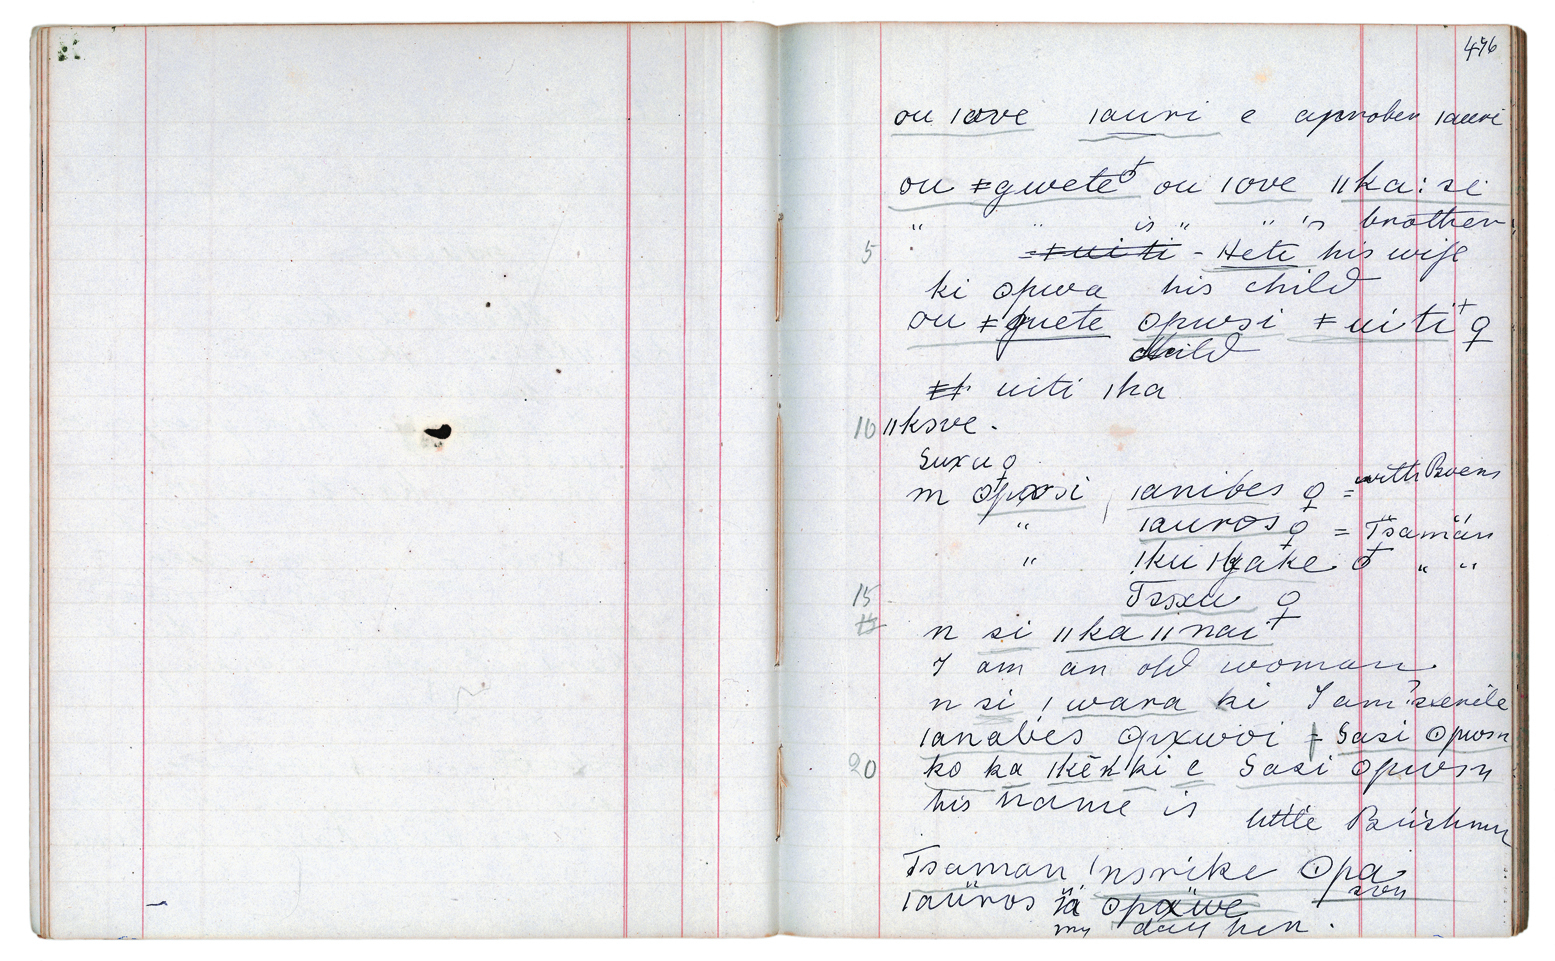 476
ou ǀove ǀauri e aproben ǀauri
ou ǂgwete ♂ ou ǀove ǁka:si
" " is " " 's brother
5 ǂuiti - Heti his wife
ki ʘpwa his child
ou ǂguete ʘpwsi ǂuiti ♀
child
ǂk uiti ǀka
10 ǁksve.
Suxu ♀
m ʘpwsi ǀanibes ♀ = with Boers
" ǀauros ♀ = Tsamän
" !ku ǀgake ♂ " "
15 Tsoxu ♀
n si ǁka ǁnai
I am an old woman
n si ǃwara ki I am ? sterile
ǀanabies ʘpxwoi ǂ Sasi ʘpwsn
20 ko ka ǀkēn ki e Sasi ʘpwsn
his name is little Bushman
Tsaman ǃnsrike ʘpa
son
ǀaüros ʘpäwe
my